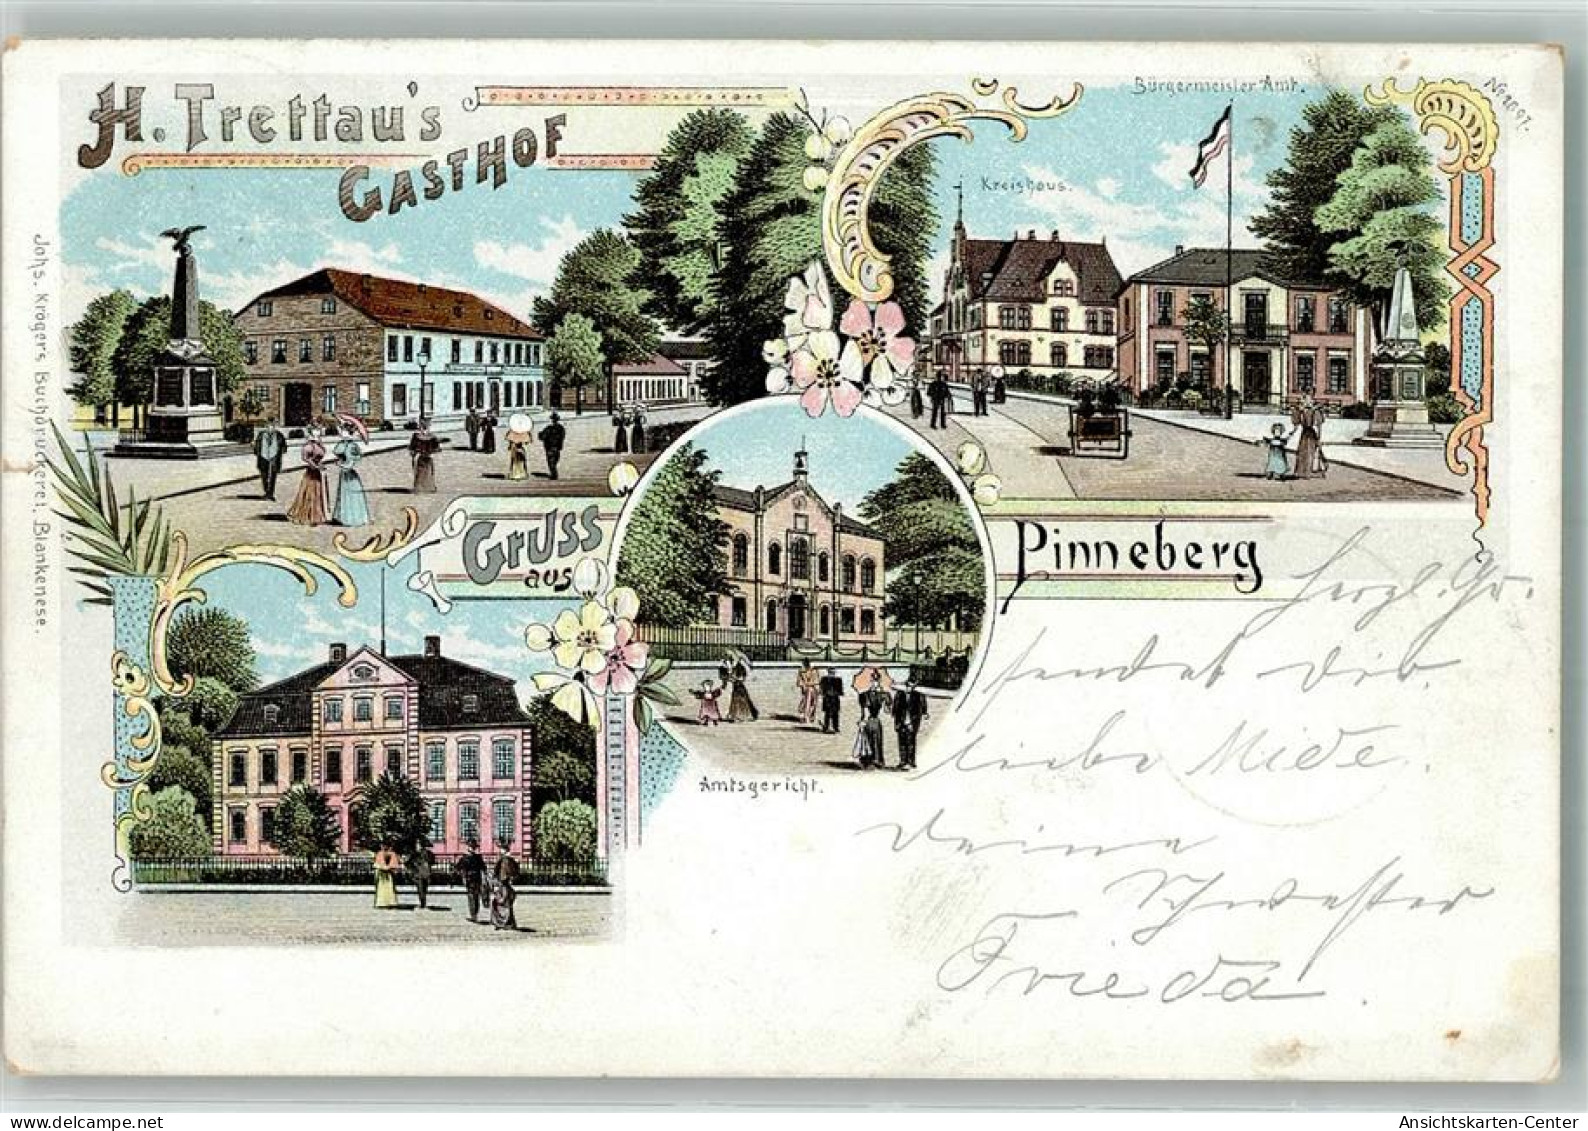 H. Trettau's
GASTHOF
Bürgermeister Amt.
Kreishaus.
Johs. Krögers Buchdruckerei Blankenese.
Gruss
aus
Pinneberg
Amtsgericht.
Herzl. Gr.
sendet dir
liebe Mide.
Deine
Schwester
Frieda.
10193113
Ansichtskarten-Center